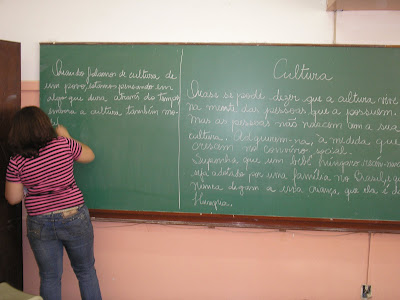 Quando falamos de cultura de
um povo, estamos pensando em
algo que dura através do tempo,
embora a cultura também mo
Cultura
Quase se pode dizer que a cultura vive
na mente das pessoas que a possuem.
mas as pessoas não nascem com a sua
cultura. Adquirem-na, à medida que
crescem no convívio social.
Suponha que um bebê húngaro recém-nas
seja adotado por uma família no Brasil, e que
nunca digam a essa criança que ela é da
Hungria.